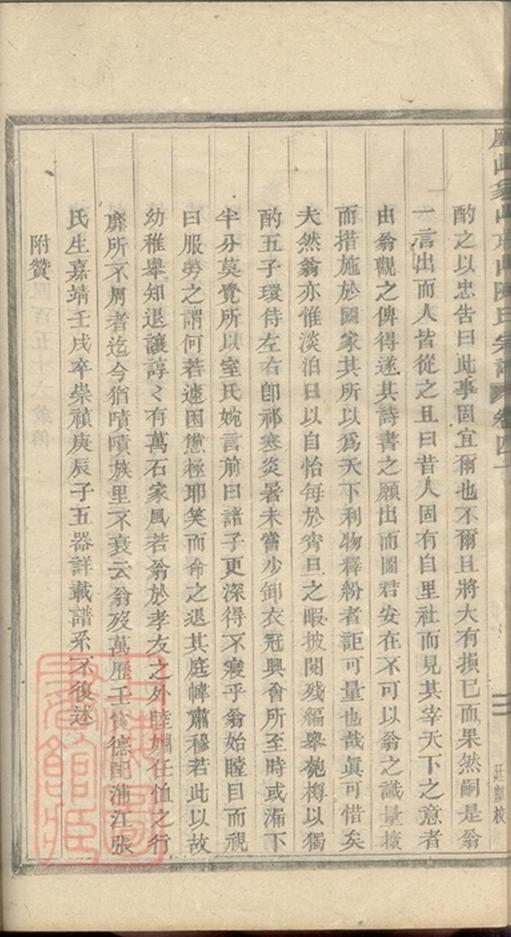 酌之以忠告曰此事固宜爾也不爾且將大有損已而果然嗣是翁
一言出而人皆從之且曰昔人固有自里社而見其宰天下之意者
由翁觀之俾得遂其詩書之願出而圖君安在不可以翁之識量擴
而措施於國家其所以為天下利物釋紛者詎可量也哉眞可惜矣
夫然翁亦惟淡泊日以自怡每於宵旦之暇披閱殘編舉匏樽以獨
酌五子環侍左右卽祁寒炎暑未嘗少卸衣冠興會所至時或漏下
半分莫覺所以室氏婉言前曰諸子更深得不寢乎翁始瞠目而視
曰服勞之謂何若遽困憊極耶笑而命之退其庭幃肅穆若此以故
幼稚舉知退讓諄〻有萬石家風若翁於孝友之外睦婣任恤之行
靡所不屑者迄今猶嘖嘖族里不衰云翁歿萬歷壬寅德配浦江張
氏生嘉靖壬戌卒崇禎庚辰子五器詳載譜系不復述
附贊